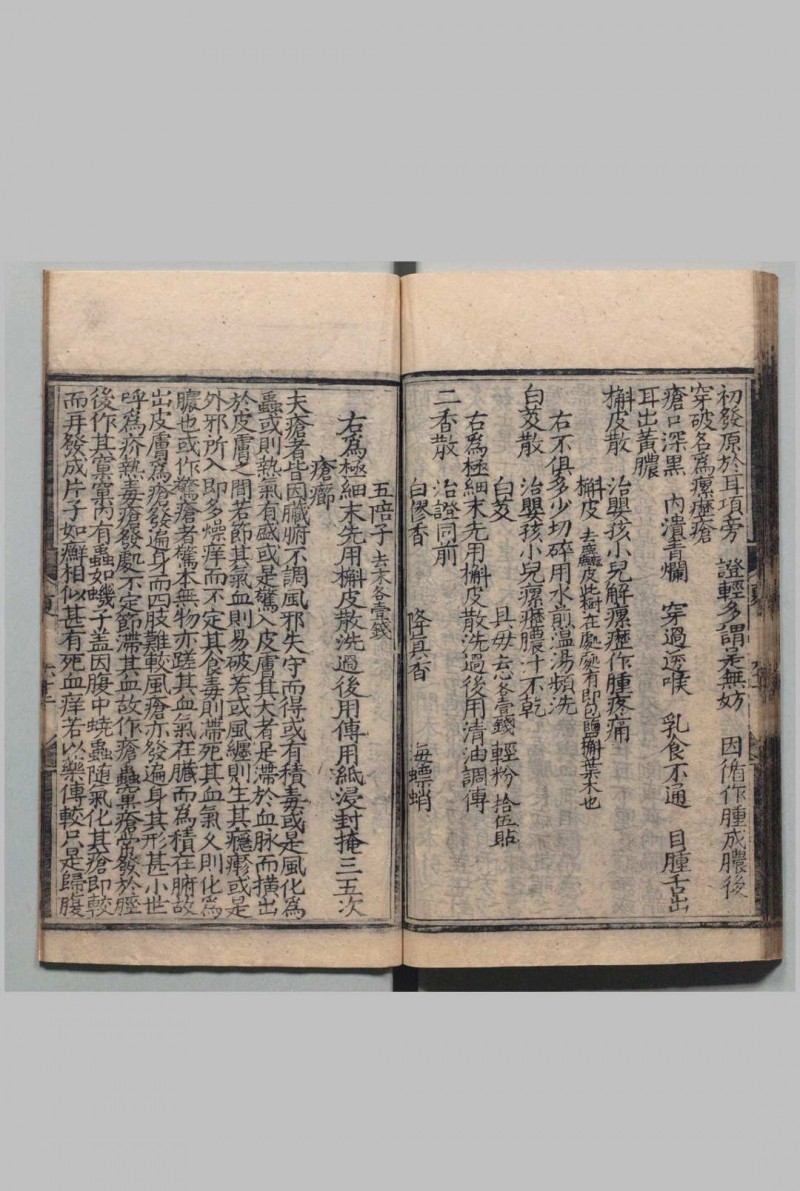 初發原於耳項旁　證輕多謂是無妨　因循作腫成膿後
穿破名爲瘰癧瘡
瘡口深黑　內潰青爛　穿過透喉　乳食不通　目腫舌出
耳出黃膿
槲皮散　治嬰孩小兒解瘰癧作腫疼痛
槲皮 去麤皮此樹在處處有即包鹽槲葉木也
右不俱多少切碎用水煎溫湯頻洗
白芨散　治嬰孩小兒瘰癧膿汁不乾
白芨　貝母 去心各壹錢　輕粉 拾伍貼
右爲極細末先用槲皮散洗過後用清油調傅
二香散　治證同前
白膠香　降真香　海螵蛸
五陪子 去末各壹錢
右爲極細末先用槲皮散洗過後用傅用紙浸封掩三五次
瘡癤
夫瘡者皆因臟腑不調風邪失守而得或有積毒或是風化爲
蟲或則熱氣有盛或是驚入皮膚其大者是滯於血脉而橫出
於皮膚之間若節其氣血則易破若或風纏則生其癮疹或是
外邪所入即多燥痒而不定其食毒則滯死其血氣久則化爲
膿也或作驚瘡者驚本無物亦蹉其血氣在臟而爲積在腑故
出皮膚爲瘡發遍身而四肢難較風瘡亦發遍身其形甚小世
呼爲疥熱毒瘡發處不定節滯其血故作瘡蠱窠瘡常發於脛
後作其窠窠內有蟲如蟣子盖因腹中蟯蟲随氣化其瘡即較
而再發成片子如癬相似甚有死血痒若以藥傅較只是歸腹